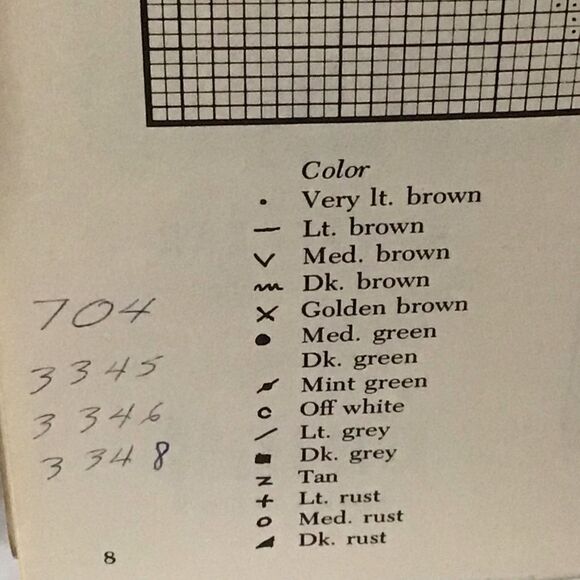 Color
Very lt. brown
Lt. brown
Med. brown
Dk. brown
Golden brown
Med. green
Dk. green
Mint green
Off white
Lt. grey
Dk. grey
Tan
Lt. rust
Med. rust
Dk. rust
704
3345
3346
3348
8